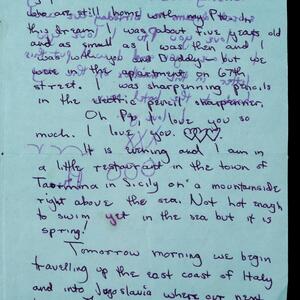 who are still home with my Pto. In
this dream I was about five years old
and as small as I was then and I
was with you and Daddy but we
were in the apartment on 67th
street. I was sharpenning pencils
in the electric pencil sharpenner.
Oh Pto, I love you so
much. I love you.
It is evening and I am in
a little restaurant in the town of
Taormina in Sicily on a mountainside
right above the sea. Not hot enough
to swim yet in the sea but it is
spring!
Tomorrow morning we begin
travelling up the east coast of Italy
and into Jugoslavia where our next